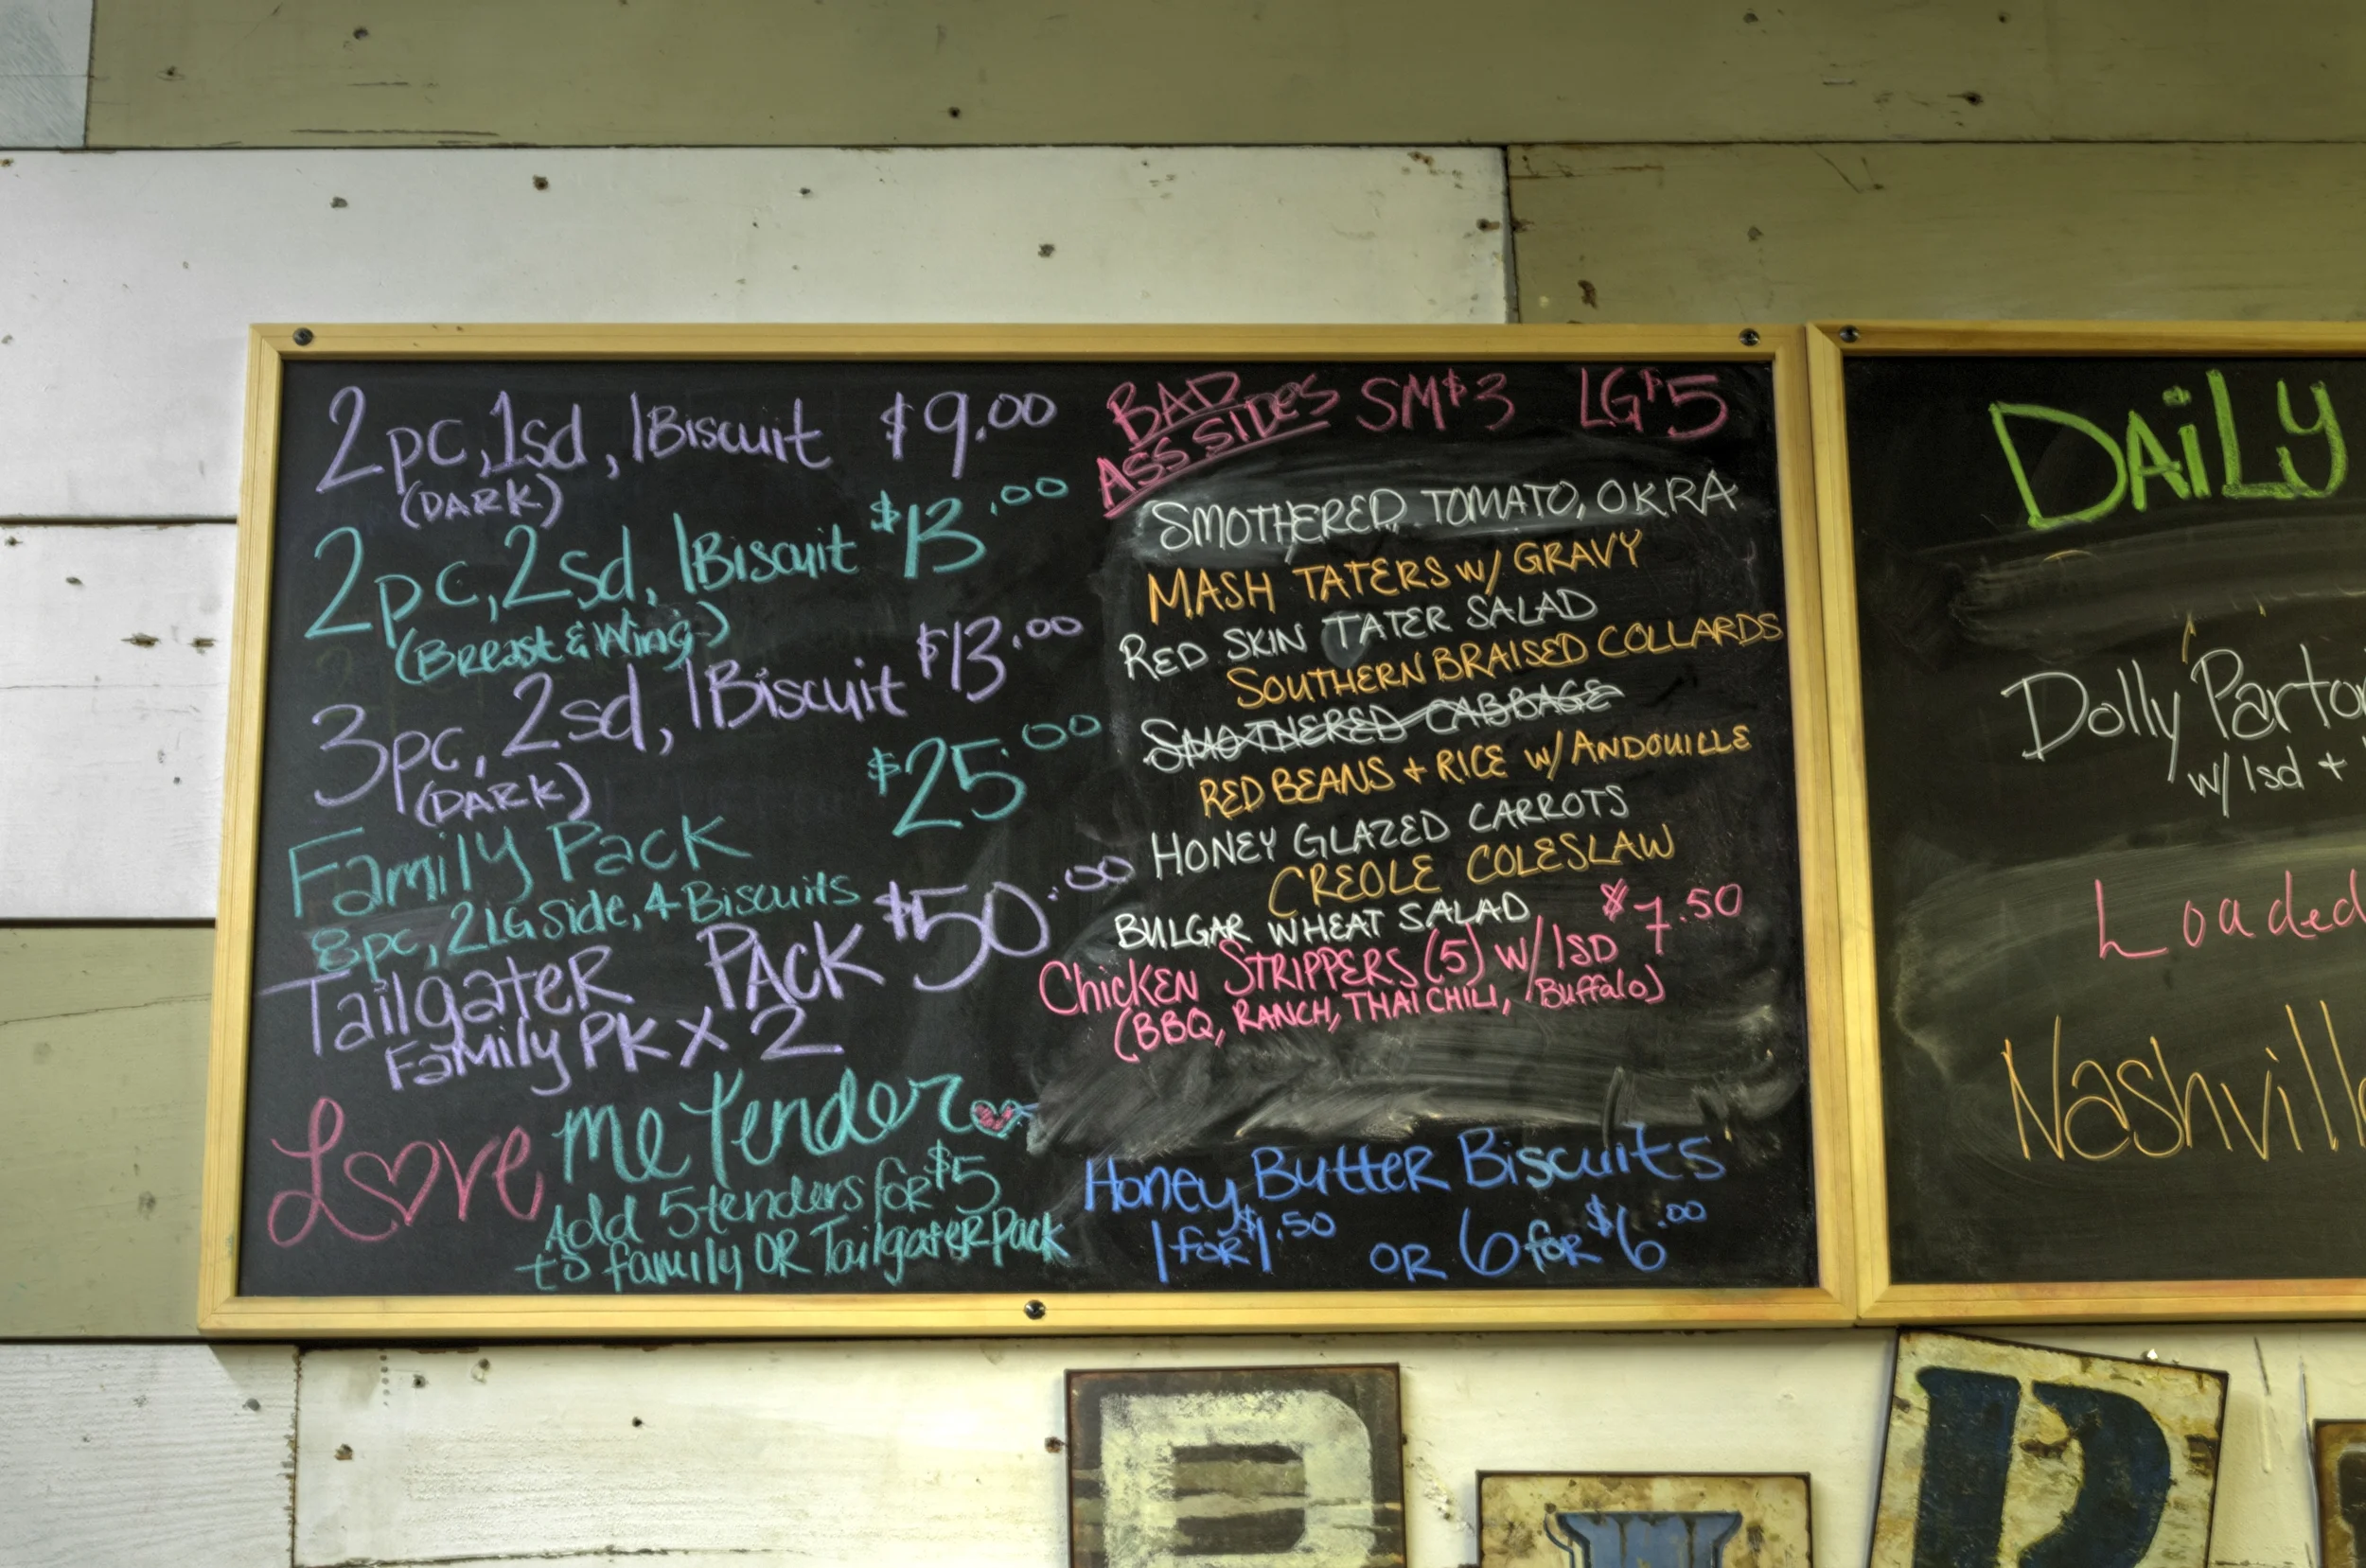 2pc, 1sd, 1Biscuit $9.00
(DARK)
2pc, 2sd, 1Biscuit $13.00
(Breast & Wing)
3pc, 2sd, 1Biscuit $13.00
(DARK)
Family Pack $25.00
8pc, 2 LG Side, 4 Biscuits
TailgateR PACK $50.00
Family PK X 2
Love me Tender
Add 5 tenders for $5
to family OR Tailgater Pack
BAD
ASS SIDES SM $3 LG $5
SMOTHERED TOMATO, OKRA
MASH TATERS w/ GRAVY
RED SKIN TATER SALAD
SOUTHERN BRAISED COLLARDS
SMOTHERED CABBAGE
RED BEANS + RICE w/ ANDOUILLE
HONEY GLAZED CARROTS
CREOLE COLESLAW
BULGAR WHEAT SALAD
Chicken STRIPPERS (5) w/ 1SD $7.50
(BBQ, RANCH, THAI CHILI, Buffalo)
Honey Butter Biscuits
1 for $1.50 OR 6 for $6.00
DAiLy
Dolly Parto
w/ 1sd +
Loaded
Nashvill